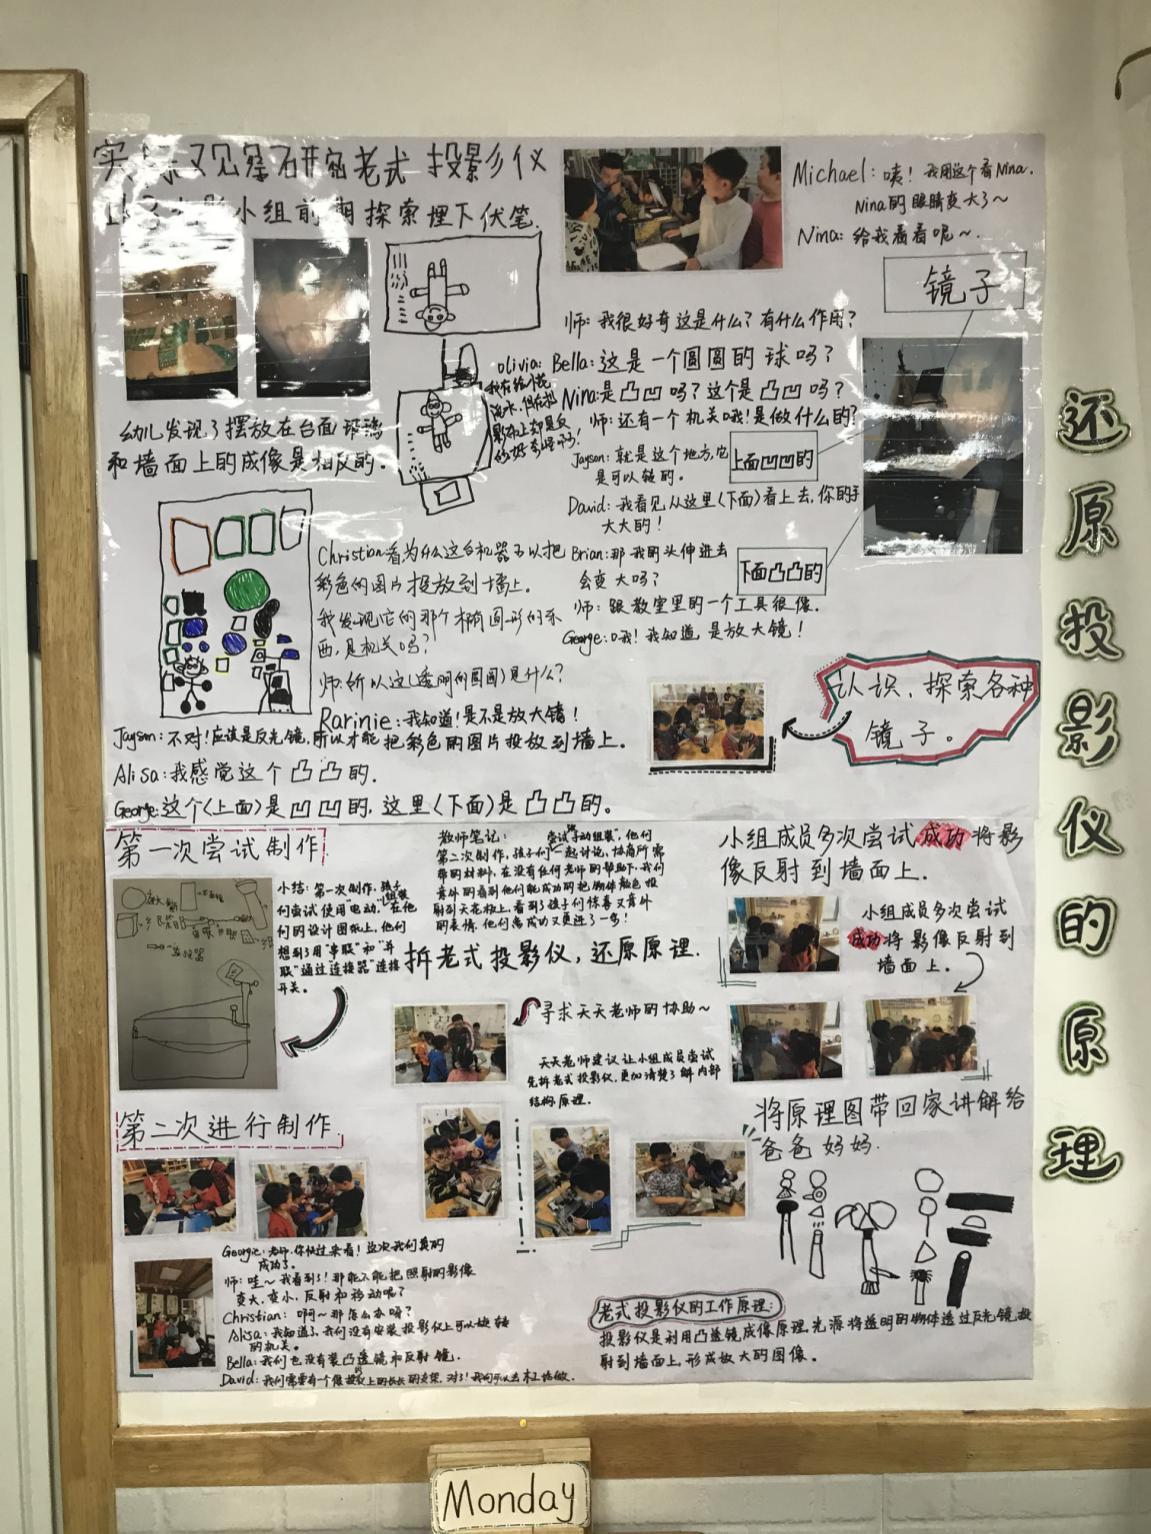 实际观察研究老式投影仪
小组前期探索埋下伏笔.
Michael: 咦! 我用这个看Nina.
Nina的眼睛变大了~
Nina: 给我看看呢~.
镜子
师: 我很好奇这是什么? 有什么作用?
olivia:
Bella: 这是一个圆圆的球吗?
Nina: 是凸凹吗? 这个是凸凹吗?
师: 还有一个机关哦! 是做什么的?
Jayson: 就是这个地方, 它
是可以转的。
上面凹凹的
David: 我看见从这里(下面)看上去, 你的手
大大的!
Brian: 那我的头伸进去
会变大吗?
下面凸凸的
师: 跟教室里的一个工具很像.
George: 哦! 我知道 是放大镜!
幼儿发现了摆放在台面玻璃
和墙面上的成像是相反的。
Christian: 看为什么这台机器可以把
彩色的图片投放到墙上.
我发现它的那个椭圆形的东
西, 是机关吗?
师: 所以这(透明的圆圆)是什么?
Rarinie: 我知道! 是不是放大镜!
Jayson: 不对! 应该是反光镜, 所以才能把彩色的图片投放到墙上.
Alisa: 我感觉这个凸凸的.
George: 这个(上面)是凹凹的, 这里(下面)是凸凸的。
认识、探索各种
镜子。
第一次尝试制作
小结: 第一次制作, 孩子
们尝试使用"电动, 在他
们的设计图纸上, 他们
想到了用"串联"和"并
联"通过"连接器"连接
开关。
教师笔记: 尝试"手动组装", 他们
第二次制作, 孩子们一起讨论, 协商所需
带的材料, 在没有任何老师的帮助下, 我们
意外的看到他们能成功的把物体颜色投
射到天花板上, 看到孩子们惊喜又意外
的表情, 他们离成功又更进了一步!
拆老式投影仪, 还原原理.
寻求天天老师的协助~
天天老师建议让小组成员尝试
先拆老式投影仪, 更加清楚了解内部
结构原理.
小组成员多次尝试成功将影
像反射到墙面上.
小组成员多次尝试
成功将影像反射到
墙面上.
第二次进行制作.
将原理图带回家讲解给
爸爸妈妈.
Georgie: 老师, 你快过来看! 这次我们真的
成功了.
师: 哇~ 我看到了! 那能不能把照射的影像
变大, 变小, 反射和移动呢?
Christian: 啊~ 那怎么办呀?
Alisa: 我知道了, 我们没有安装投影仪上可以旋转
的机关。
Bella: 我们也没有装凸透镜和反射镜.
David: 我们需要有一个像投影仪上的长长的支架, 对了! 我们可以去木工坊做.
老式投影仪的工作原理:
投影仪是利用凸透镜成像原理, 光源将透明的物体透过反光镜, 投
射到墙面上, 形成放大的图像。
还原投影仪的原理
Monday